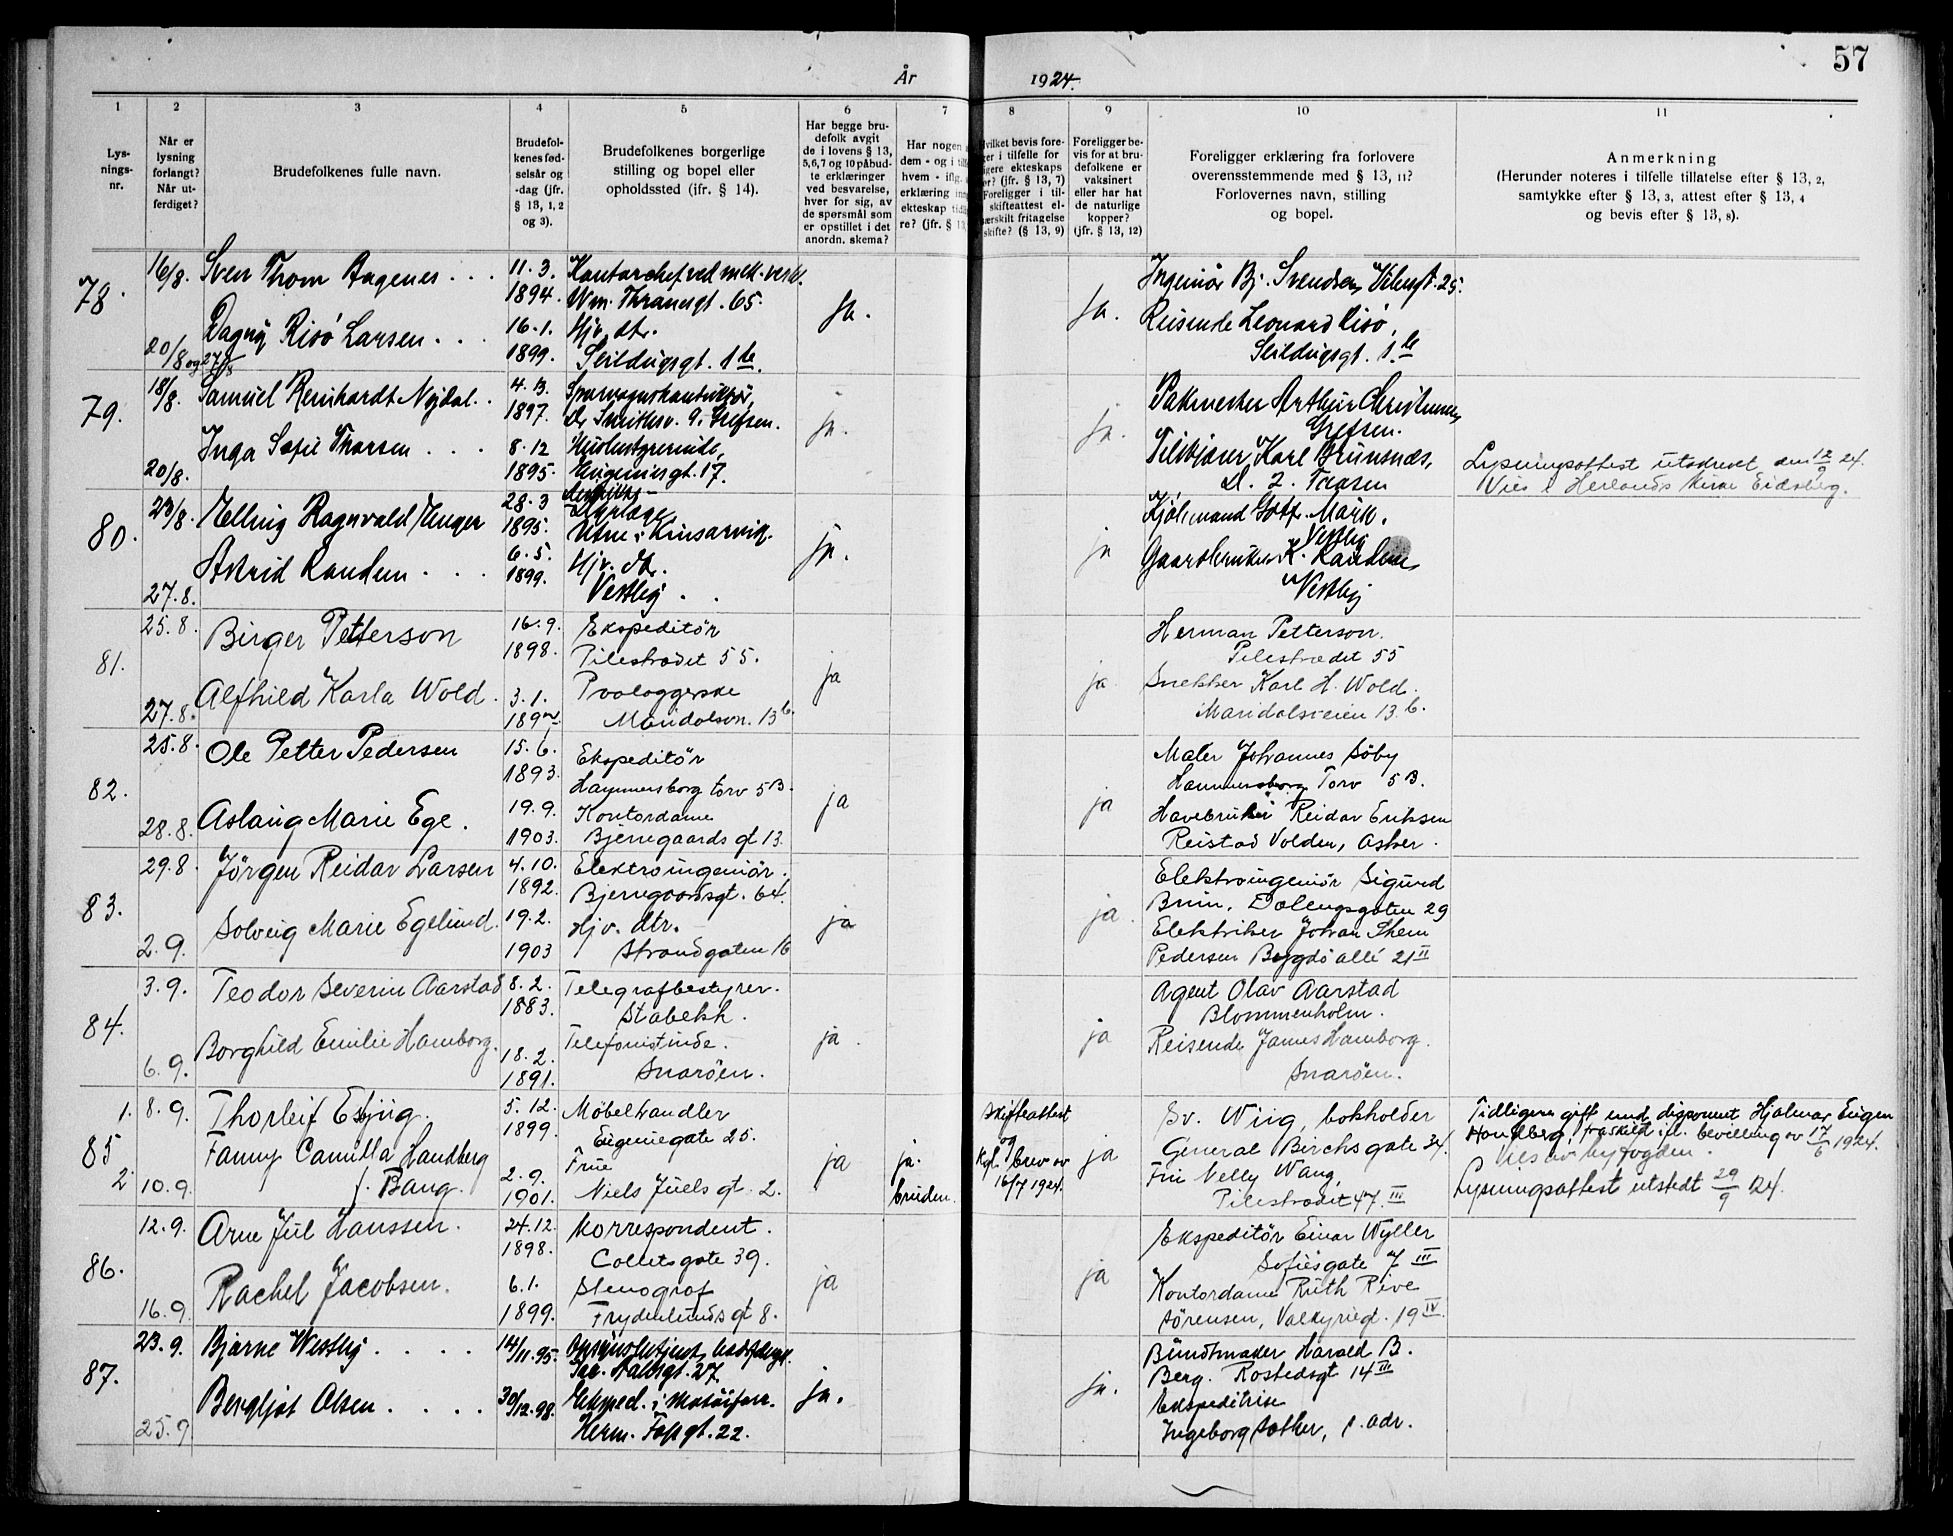 57
År 1924.
1 2 3 4 5 6 7 8 9 10 11
Lysningsnr.
Når er lysning forlangt? Når utferdiget?
Brudefolkenes fulle navn.
Brudefolkenes fødselsår og -dag (jfr. § 13, 1, 2 og 3).
Brudefolkenes borgerlige stilling og bopel eller opholdssted (jfr. § 14).
Har begge brudefolk avgit de i lovens § 13, 5, 6, 7 og 10 påbudte erklæringer ved besvarelse, hver for sig, av de spørsmål som er opstillet i det anordn. skema?
Har nogen
dem - og i
hvem - iflg.
erklæring
ekteskap
re? (jfr. § 13
Hvilket bevis fore-
i tilfelle for
ekteskaps
(jfr. § 13, 7)
Foreligger i til-
skifteattest el-
fritagelse
skifte? (§ 13, 9)
Foreligger bevis for at brudefolkene er vaksinert eller har hat de naturlige kopper? (jfr. § 13, 12)
Foreligger erklæring fra forlovere overensstemmende med § 13, 11? Forlovernes navn, stilling og bopel.
Anmerkning
(Herunder noteres i tilfelle tillatelse efter § 13, 2, samtykke efter § 13, 3, attest efter § 13, 4 og bevis efter § 13, 8).
78. 16/8. Sven Thom Aagenes 11.3. 1894. Kontorchef ved mek. verkst. Wm. Thranesgt. 65. Ja. Ja. Ingeniør Bj. Svendsen 25.
20/8 og 27/8 Dagny Risö Larsen 16.1. 1899. Hjv. dtr. Seildugsgt. 1 Reisende Leonard Risö, Seildugsgt. 1
79. 18/8. Samuel Reinhardt Nydal. 4. 1897. Sporvognskonduktör, Dr. Smithsv. 9. Grefsen. ja. ja. Pakmester Arthur Grefsen.
20/8. Inga Sofie Thorsen 8.12 1895. Eugeniesgt. 17. Karl Grünsnes, Taasen
Lysningsattest utskrevet den 12/9 24.
Vies i Herlands kirke Eidsberg.
80. 23/8. Elling Ragnvald Unger 28.3 1895. Dyrlæge Utne i Kinsarvik. ja. ja Kjölmand Märk. Vestby
27.8. Astrid Randem 6.5. 1899. Hjv. dtr. Vestby. Gaardbruker K. Randem, Vestby
81. 25.8 Birger Petterson 16.9. 1898. Ekspeditör Pilestrædet 55. ja ja Herman Petterson. Pilestrædet 55
27.8. Alfhild Karla Wold. 3.1. Maridalsvn. 13 b. Snekker Karl H. Wold. Maridalsveien 13 b.
82. 25.8. Ole Petter Pedersen 15.6. 1893. Ekspeditör Hammersborg torv 5B. ja ja Maler Johannes Söby Hammersborg Torv 5B.
28.8. Aslaug Marie Ege. 19.9. 1903. Kontordame Bjerregaards gt 13. Havebruker Reidar Eriksen Reistad Volden, Asker.
83. 29.8. Jörgen Reidar Larsen 4.10. 1892. Elektroingeniör. Bjerregaardsgt. 64. ja ja. Elektroingeniör Sigurd Bruin, 29
2.9. Solveig Marie Egelund. 19.2. 1903 Hjv. dtr. Strandgaten 16 Elektriker Johan Pedersen Bygdö allé 21 II
84. 3.9. Teodor Severin Aarstad 8.2. 1883. Telegrafbestyrer. Stabekk. ja. ja Agent Olav Aarstad Blommenholm.
6.9. Borghild Emilie Hamborg. 18.2. 1891. Telefonistinde. Snaröen. Reisende James Hamborg. Snaröen.
85 1. 8.9. Thorleif Esbjug. 5.12. 1899. Möbelhandler Eugeniegate 25. ja ja. bruden. Skifteattest og Kgl. brev av 16/7 1924. ja Sv. Wiig, bokholder General Birchsgate 34.
2 10.9. Fanny Camilla Handberg f. Bang. 2.9. 1901. Frue Niels Juels gt. 2. Fru Nelly Wang, Pilestrædet 47. III
Tidligere gift med disponent Hjalmar Eugen Handberg, fraskilt ifl. bevilling av 17/6 1924.
Vies av byfogden.
Lysningsattest utstedt 29/9 24.
86. 12.9. Arne Jül Hanssen. 24.12. 1898. Korrespondent. Colletsgate 39. ja ja Ekspeditör Einar Wyller Sofiesgate 7 III
16.9. Rachel Jacobsen. 6.1. 1899. Stenograf Frydenlunds gt 8. Kontordame Ruth Rive Sörensen, Valkyriegt. 19 IV.
87. 23.9. Bjarne Westby 14/11.95. 27 ja. ja. Buntmaker Harald B. Berg. Rostedsgt 14 III
25.9 Bergljot Olsen 30/12.98. Ekspeditrise Herm. Fossgt. 22. Ingeborg Sæther, s. adr.